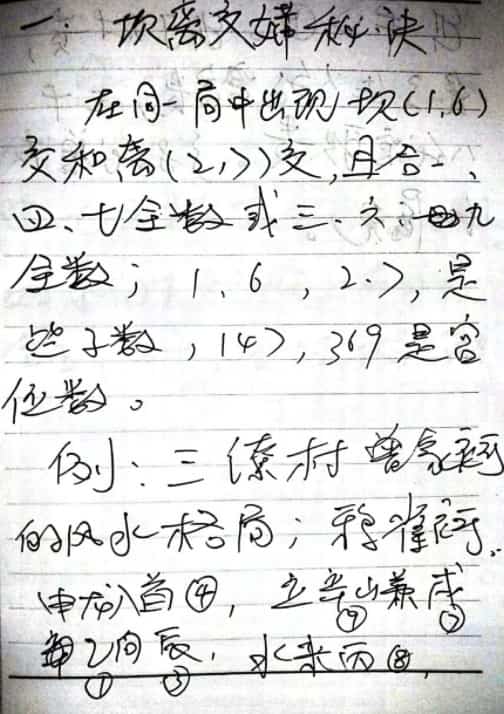 一、坎离交媾秘诀
在同一局中出现坎(1.6)
交和离(2,7)交,且合一、
四、七全数或三.六九
全数; 1. 6 , 2.7, 是
些子数,147,369是宫
位数。
例:三僚村曾家祠
的风水格局;
申龙入首④,立辛山兼戌
⑨ ⑦
乙向辰,水来丙⑧,
① ③